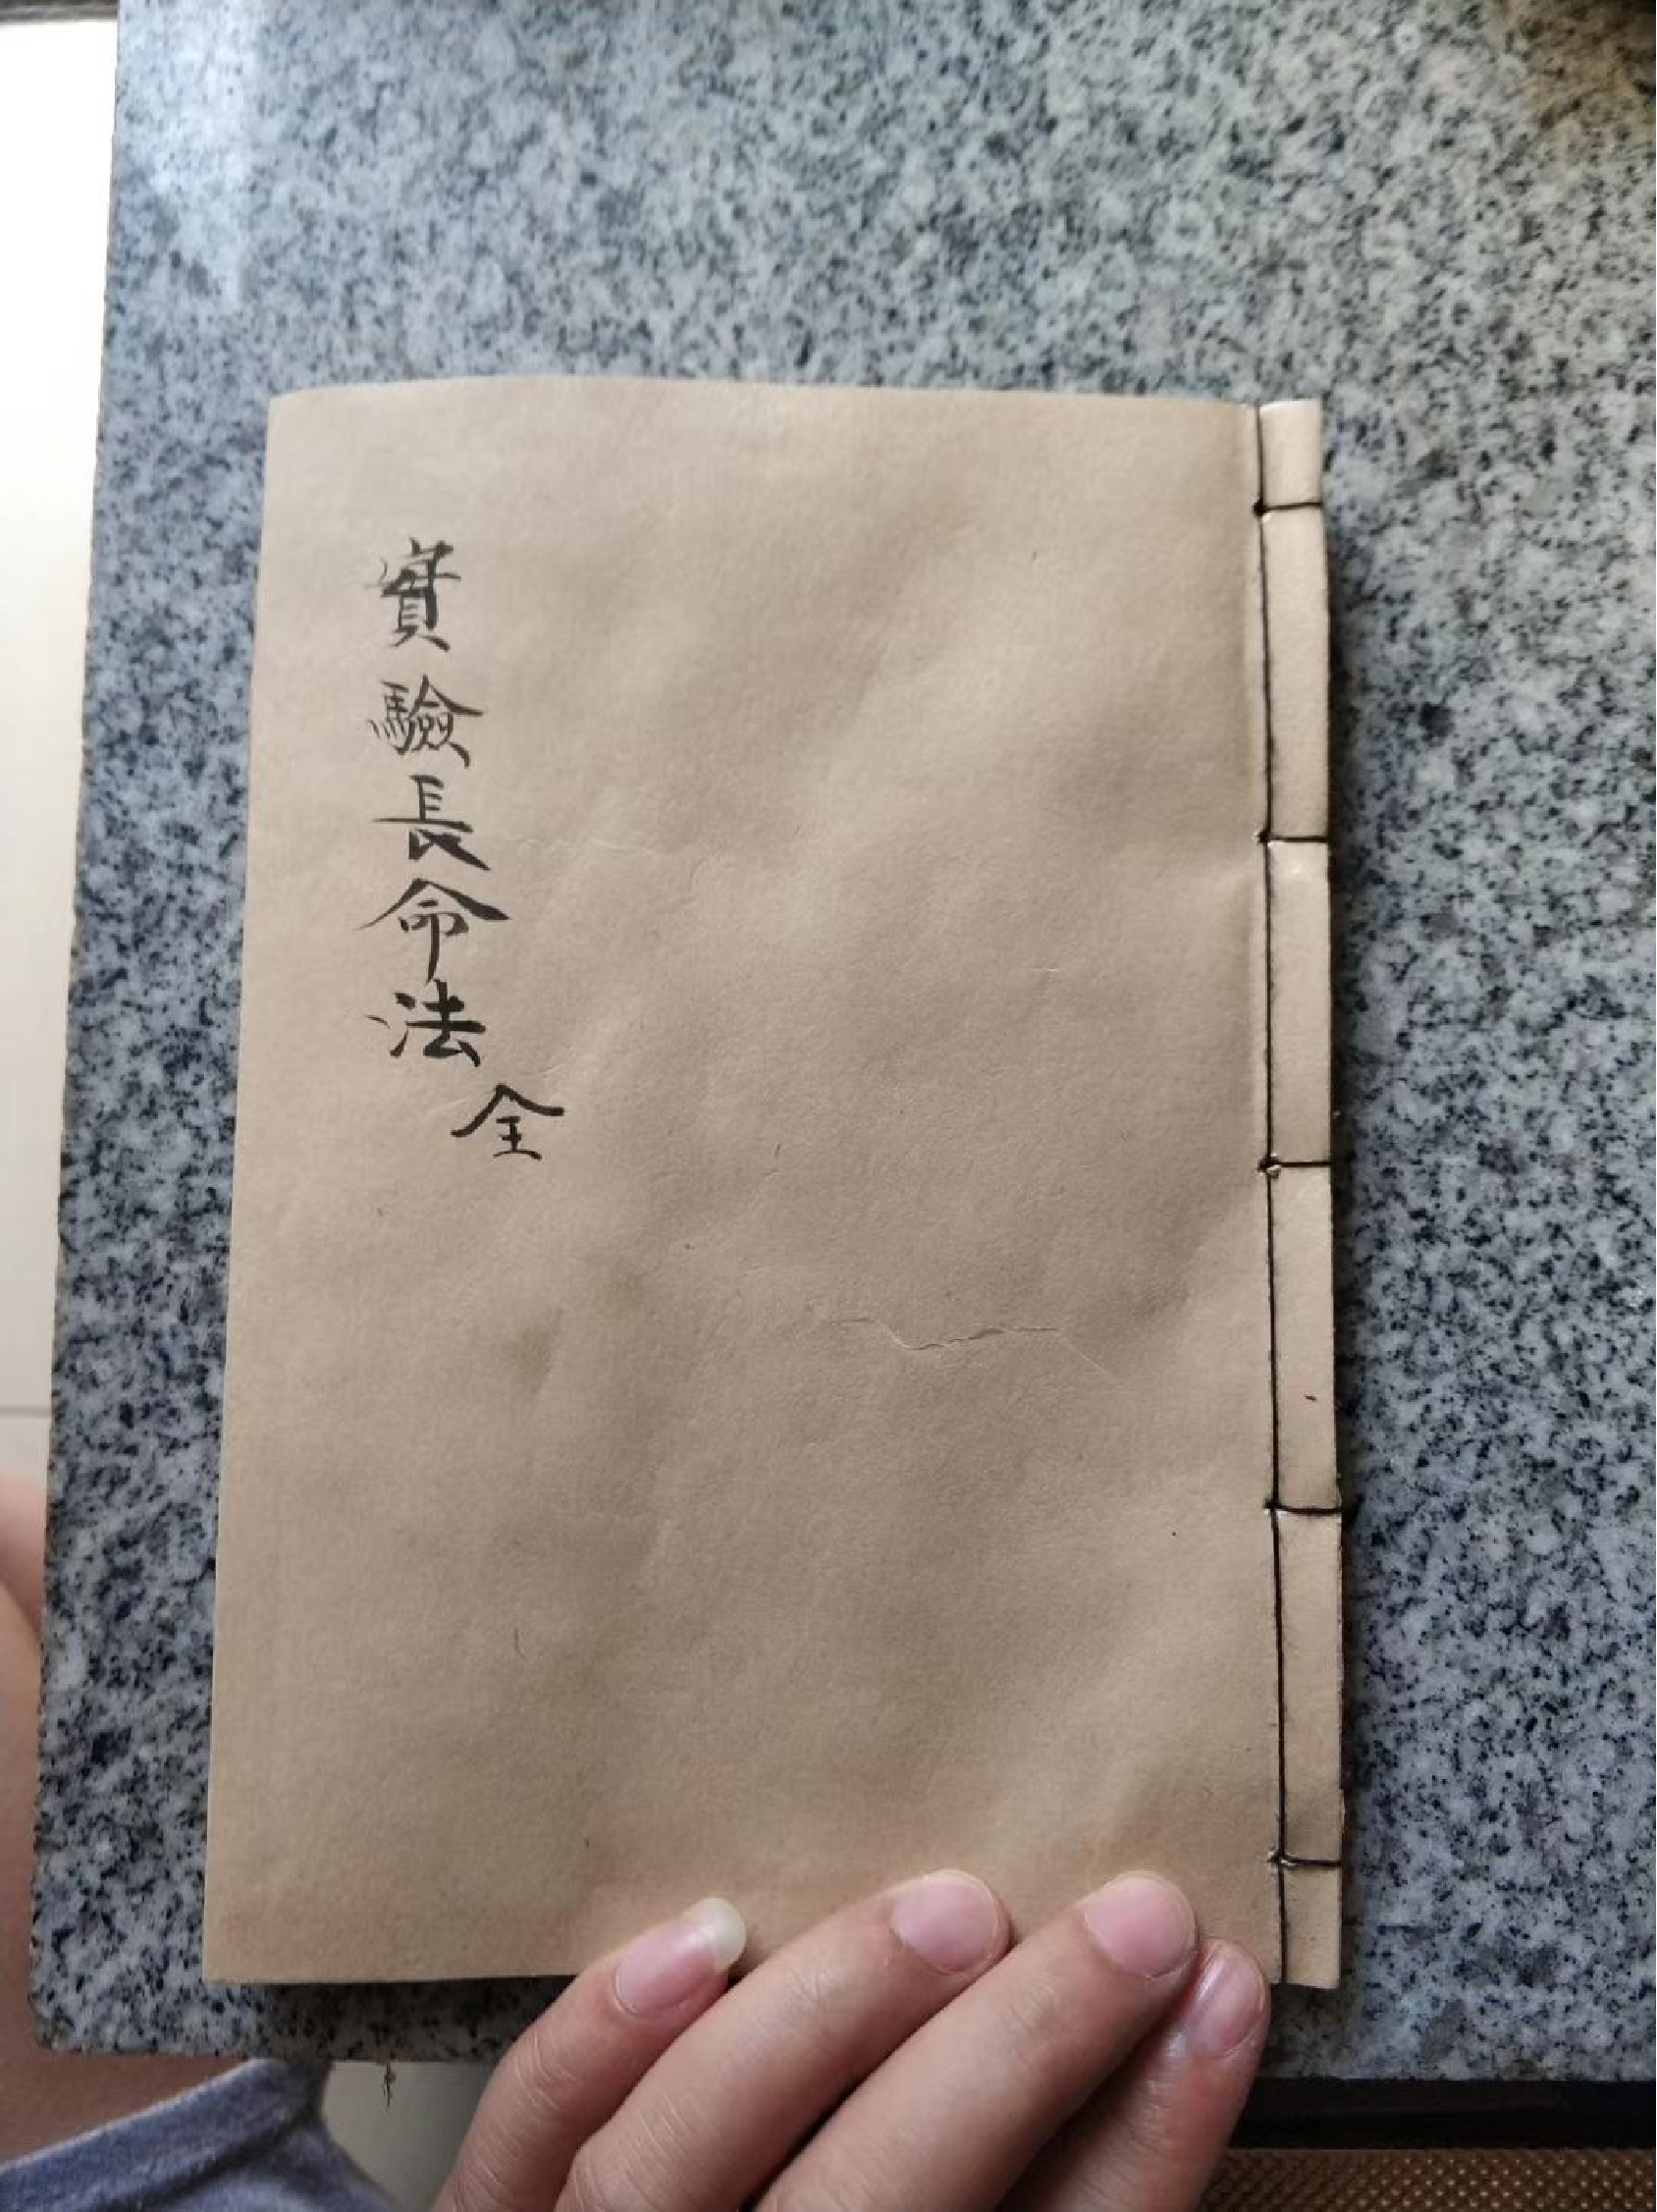 實驗長命法
全